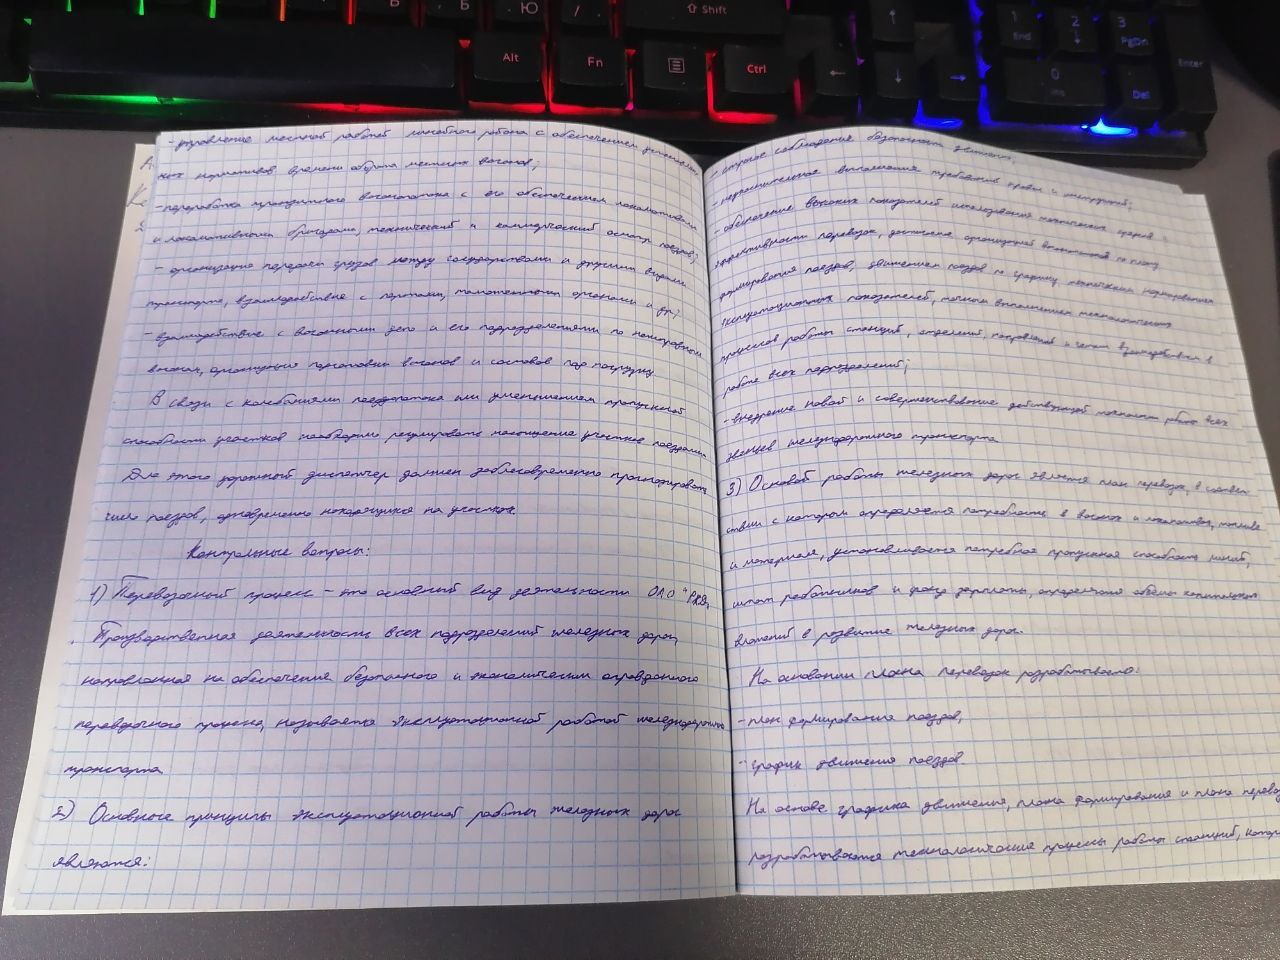 Ю
Shift
Alt
Fn
Ctrl
1
End
2
3
PgDn
0
Ins
Del
Enter
- управление местной работой линейного района с обеспечением установлен
ных нормативов времени оборота местных вагонов;
- переработка транзитного вагонопотока с его обеспечением локомотивами
и локомотивными бригадами, технический и коммерческий осмотр поездов;
- организация передачи грузов между государствами и другими видами
транспорта, взаимодействие с портами, таможенными органами и др;
- взаимодействие с вагонными депо и его подразделениями по неисправным
вагонам, организация подготовки вагонов и составов под погрузку.
В связи с колебаниями поездопотока или уменьшением пропускной
способности участков необходимо регулировать насыщение участков поездами
Для этого дорожный диспетчер должен заблаговременно прогнозировать
число поездов, одновременно находящихся на участках.
Контрольные вопросы:
1) Перевозочный процесс - это основной вид деятельности ОАО "РЖД".
Производственная деятельность всех подразделений железных дорог,
направленная на обеспечение безопасного и экономически оправданного
перевозочного процесса, называется эксплуатационной работой железнодорожного
транспорта
2) Основные принципы эксплуатационной работы железных дорог
являются:
- строгое соблюдение безопасности движения;
- выполнения требований правил и инструкций;
- обеспечение высоких показателей использования технических средств и
эффективности перевозок, организацией вагонопотоков по плану
формирования поездов, движением поездов по графику, нормированием
эксплуатационных показателей, точным выполнением технологических
процессов работы станций, отделений, и четким взаимодействием в
работе всех подразделений;
- внедрение новой и совершенствование действующей технологии работы всех
звеньев железнодорожного транспорта
3) Основой работы железных дорог является план перевозок, в соответ
ствии с которым определяется потребность в вагонах и локомотивах, топливе
и материалах, устанавливается потребная пропускная способность линий,
штат работников и фонд зарплаты, определяются объёмы капитальных
вложений в развитие железных дорог.
На основании плана перевозок разрабатывают:
- план формирования поездов,
- график движения поездов.
На основе графика движения, плана формирования и плана перево
разрабатываются технологические процессы работы станций, котор